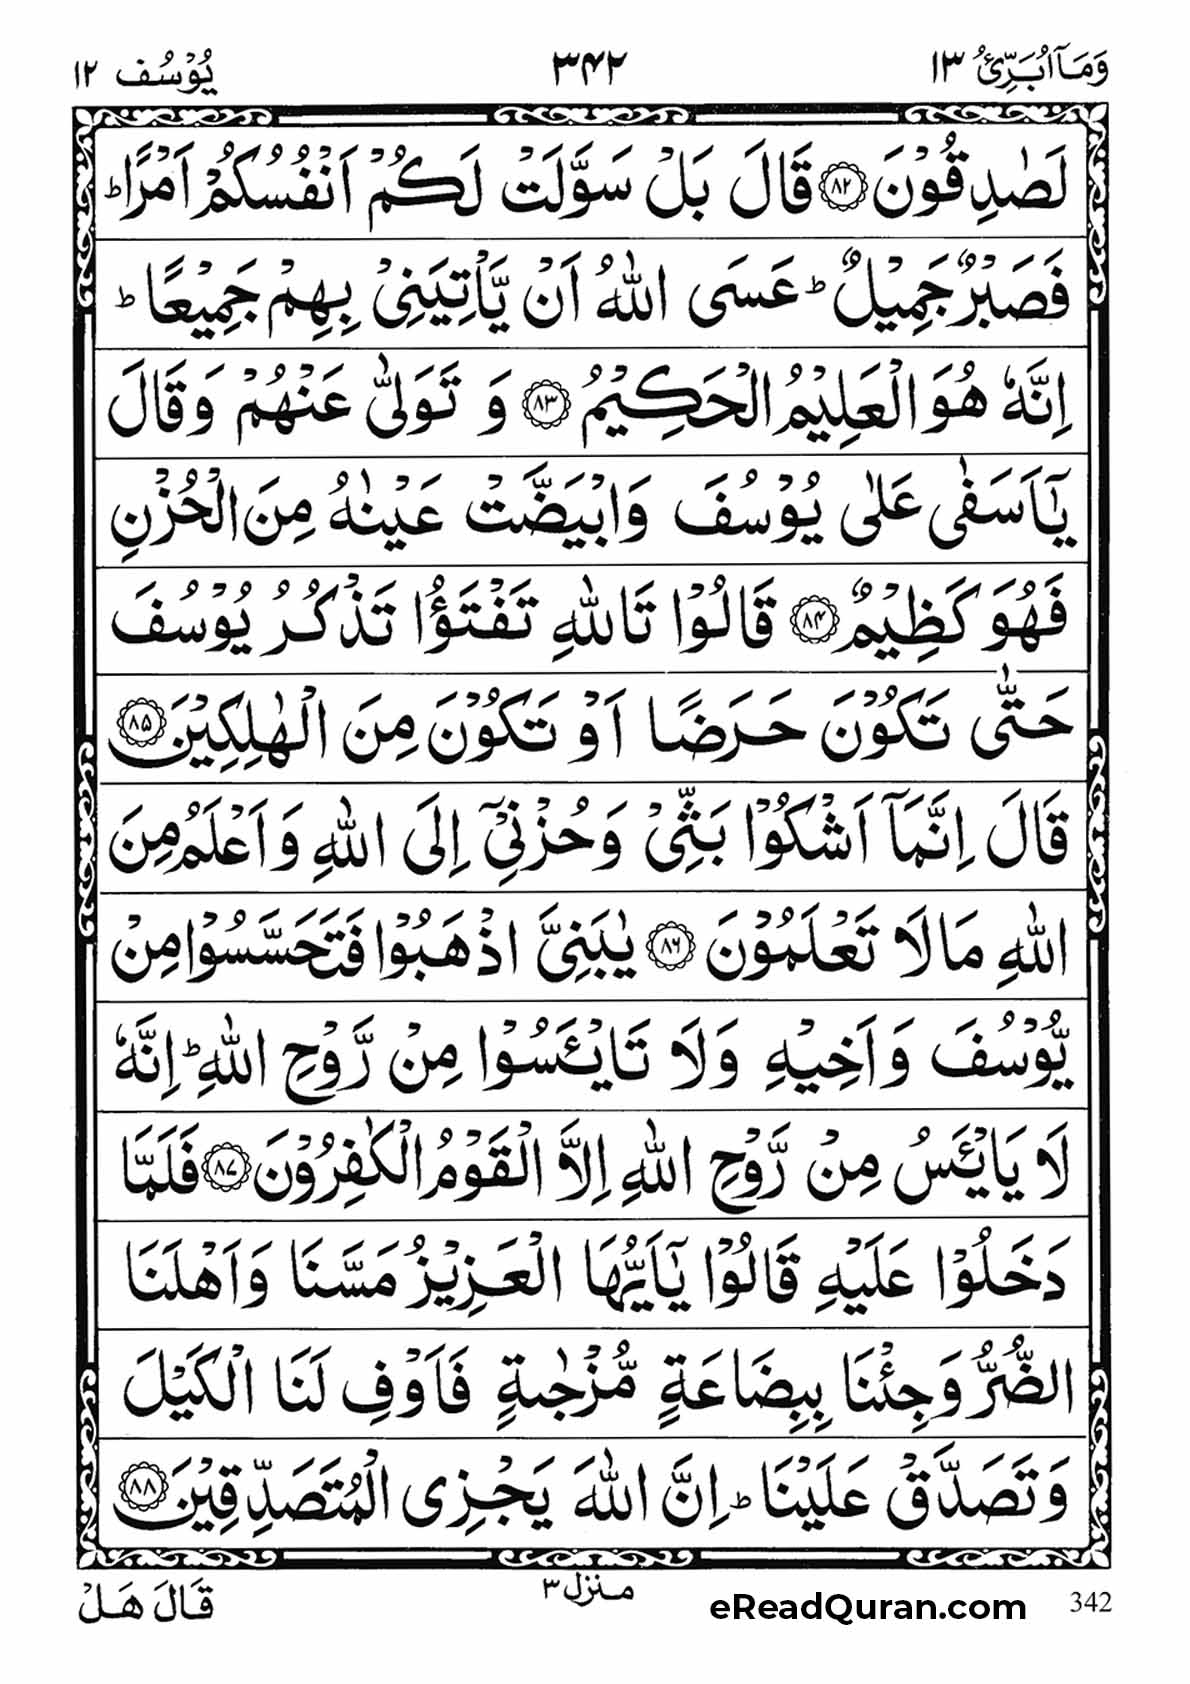 وَمَآ اُبَرِّئُ ١٣ ٣٤٢ يُوْسُف ١٢
لَصٰدِقُوْنَ ﴿٨٢﴾ قَالَ بَلْ سَوَّلَتْ لَكُمْ اَنْفُسُكُمْ اَمْرًا ؕ
فَصَبْرٌ جَمِيْلٌ ؕ عَسَى اللّٰهُ اَنْ يَّاْتِيَنِىْ بِهِمْ جَمِيْعًا ؕ
اِنَّهٗ هُوَ الْعَلِيْمُ الْحَكِيْمُ ﴿٨٣﴾ وَ تَوَلّٰى عَنْهُمْ وَقَالَ
يٰۤاَسَفٰى عَلٰى يُوْسُفَ وَابْيَضَّتْ عَيْنٰهُ مِنَ الْحُزْنِ
فَهُوَ كَظِيْمٌ ﴿٨٤﴾ قَالُوْا تَاللّٰهِ تَفْتَؤُا تَذْكُرُ يُوْسُفَ
حَتّٰى تَكُوْنَ حَرَضًا اَوْ تَكُوْنَ مِنَ الْهٰلِكِيْنَ ﴿٨٥﴾
قَالَ اِنَّمَاۤ اَشْكُوْا بَثِّىْ وَحُزْنِىْۤ اِلَى اللّٰهِ وَاَعْلَمُ مِنَ
اللّٰهِ مَا لَا تَعْلَمُوْنَ ﴿٨٦﴾ يٰبَنِىَّ اذْهَبُوْا فَتَحَسَّسُوْا مِنْ
يُّوْسُفَ وَاَخِيْهِ وَلَا تَايْـَٔسُوْا مِنْ رَّوْحِ اللّٰهِ ؕ اِنَّهٗ
لَا يَايْـَٔسُ مِنْ رَّوْحِ اللّٰهِ اِلَّا الْقَوْمُ الْكٰفِرُوْنَ ﴿٨٧﴾ فَلَمَّا
دَخَلُوْا عَلَيْهِ قَالُوْا يٰۤاَيُّهَا الْعَزِيْزُ مَسَّنَا وَاَهْلَنَا
الضُّرُّ وَجِئْنَا بِبِضَاعَةٍ مُّزْجٰىةٍ فَاَوْفِ لَنَا الْكَيْلَ
وَتَصَدَّقْ عَلَيْنَا ؕ اِنَّ اللّٰهَ يَجْزِى الْمُتَصَدِّقِيْنَ ﴿٨٨﴾
342 eReadQuran.com منزل ٣ قَالَ هَلْ